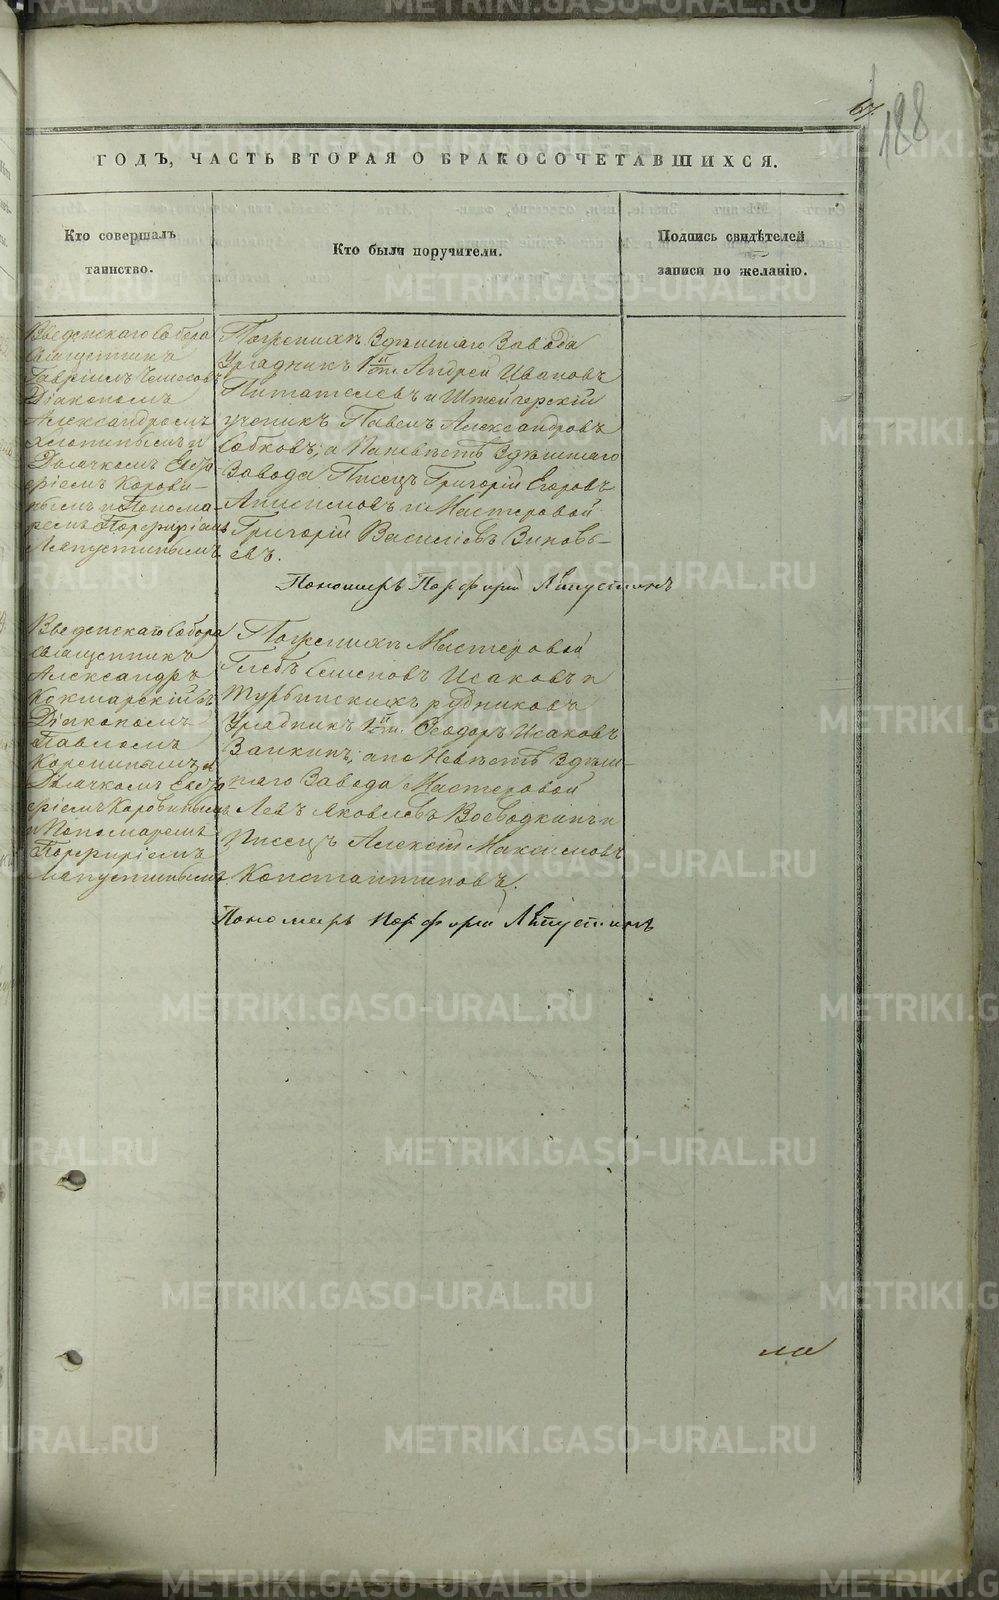 67.
188
ГОДЪ, ЧАСТЬ ВТОРАЯ О БРАКОСОЧЕТАВШИХСЯ.
Кто совершалъ
таинство.
Кто были поручители.
Подпись свидѣтелей
записи по желанію.
Введенскаго Собора
Священникъ
Гавріилъ
Діакономъ
Александромъ
Хлопинымъ и
Дьячкомъ
Корови-
нымъ и Понома-
ремъ Порфиріемъ
Ляпустинымъ
По Женихѣ Здѣшняго Завода
Урядникъ 1й ст. Андрей Ивановъ
Питателевъ и Штейгерскій
ученикъ Павелъ Александровъ
Собковъ, а по Невѣстѣ Здѣшняго
Завода Писецъ Григорій Егоровъ
Анисимовъ и Мастеровой
Григорій Васильевъ Зиновь-
евъ.
Пономарь Порфирій Ляпустинъ
Введенскаго Собора
Священникъ
Александръ
съ
Діакономъ
Павломъ
и
Дьячкомъ
Коровинымъ
и Пономаремъ
Порфиріемъ
Ляпустинымъ.
По Женихѣ Мастеровой
Глебъ Семеновъ Исаковъ и
Турьинскихъ рудниковъ
Урядникъ 1й ст. Феодоръ Исаковъ
Заикинъ, а по Невѣстѣ Здѣш-
няго Завода Мастеровой
Левъ Яковлевъ Воеводкинъ и
Писецъ Алексій Максимовъ
Константиновъ.
Пономарь Порфирій Ляпустинъ
METRIKI.GASO-URAL.RU